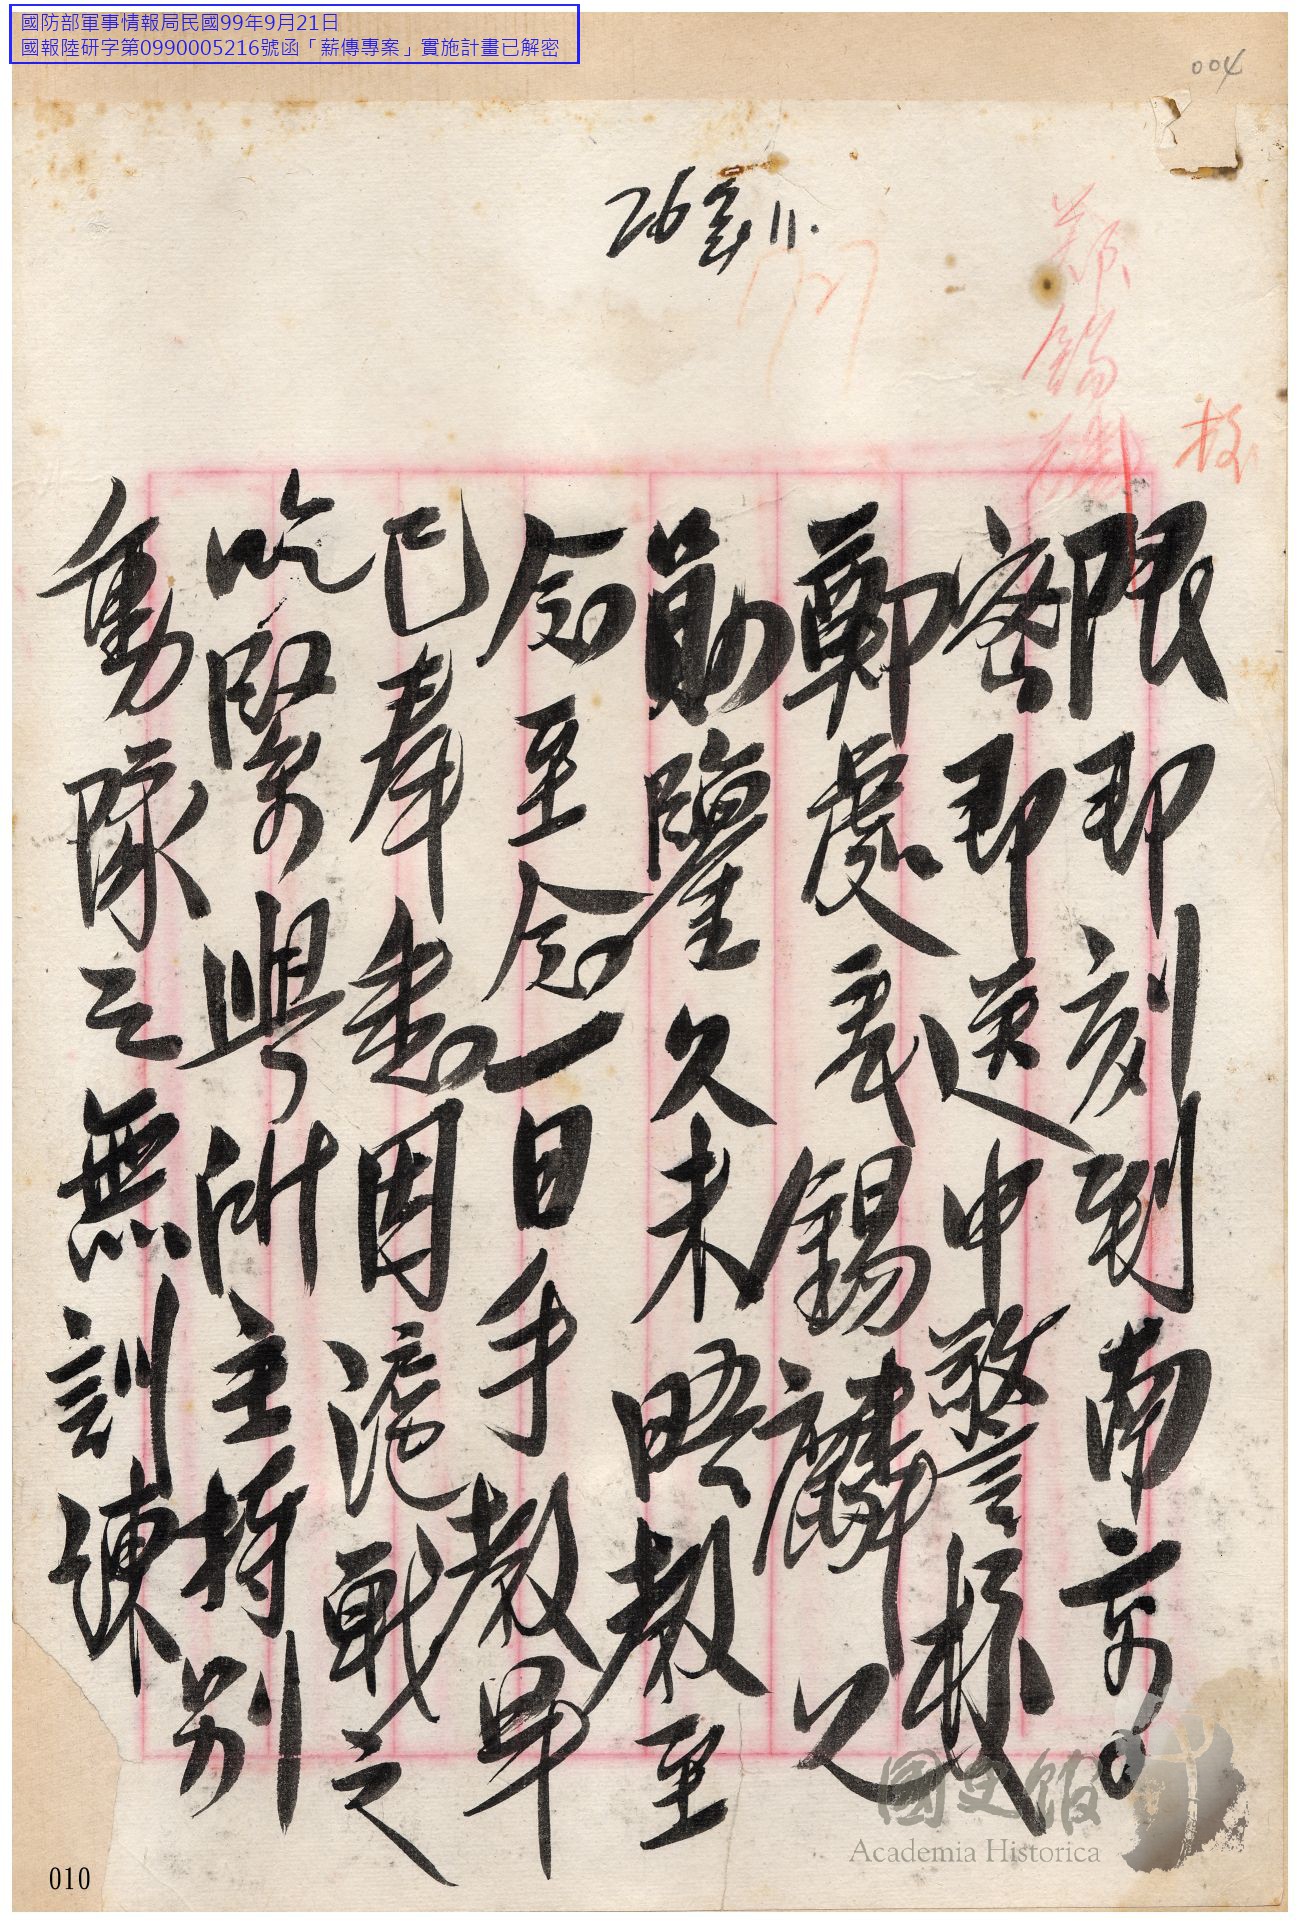 國防部軍事情報局民國99年9月21日
國報陸研字第0990005216號函「薪傳專案」實施計畫已解密
004
26年11.
鄭錫麟
校
限即刻到南京。
密即速中警校
鄭處長錫麟兄
勛鑒久未晤教至
念至念一日手教早
已奉悉因滬戰之
吃緊與所主持別
動隊之無訓練
國史館
Academia Historica
010